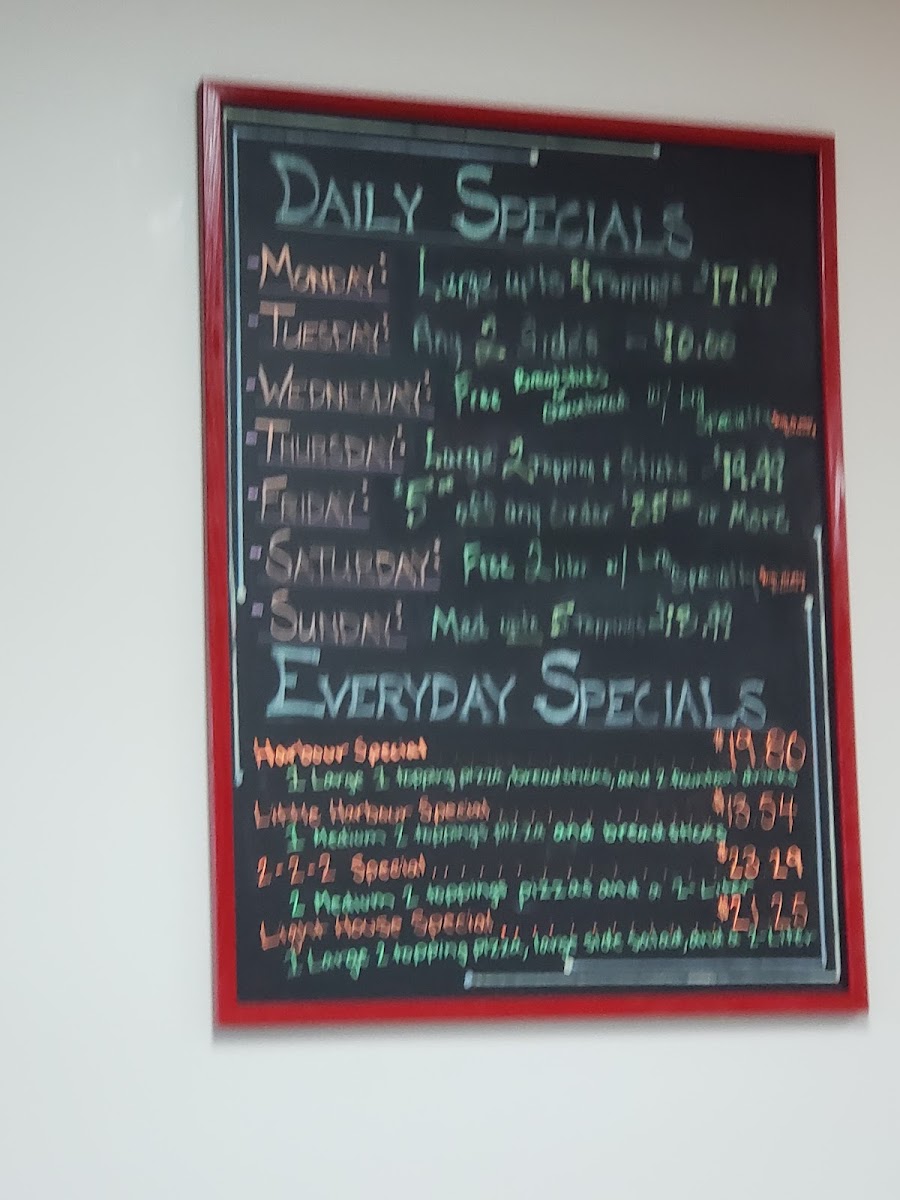 DAILY SPECIALS
MONDAY: Large up to 4 toppings $17.99
TUESDAY: Any 2 Sides - $10.00
WEDNESDAY: Free Breadsticks w/ Lg Specialty
THURSDAY: Large 2 topping + Sticks $19.99
FRIDAY: $5 off any order or More
SATURDAY: Free 2 liter w/ Lg Specialty
SUNDAY: Med upto 5 toppings
EVERYDAY SPECIALS
Harbour Special $19.80
1 Large 2 topping pizza, breadsticks, and 2 fountain drinks
Little Harbour Special $13.54
1 Medium 2 toppings pizza and breadsticks
2-2-2 Special $23.29
2 Medium 2 toppings pizzas and a 2-Liter
Light House Special $21.25
1 Large 2 topping pizza, large side salad, and a 2-Liter